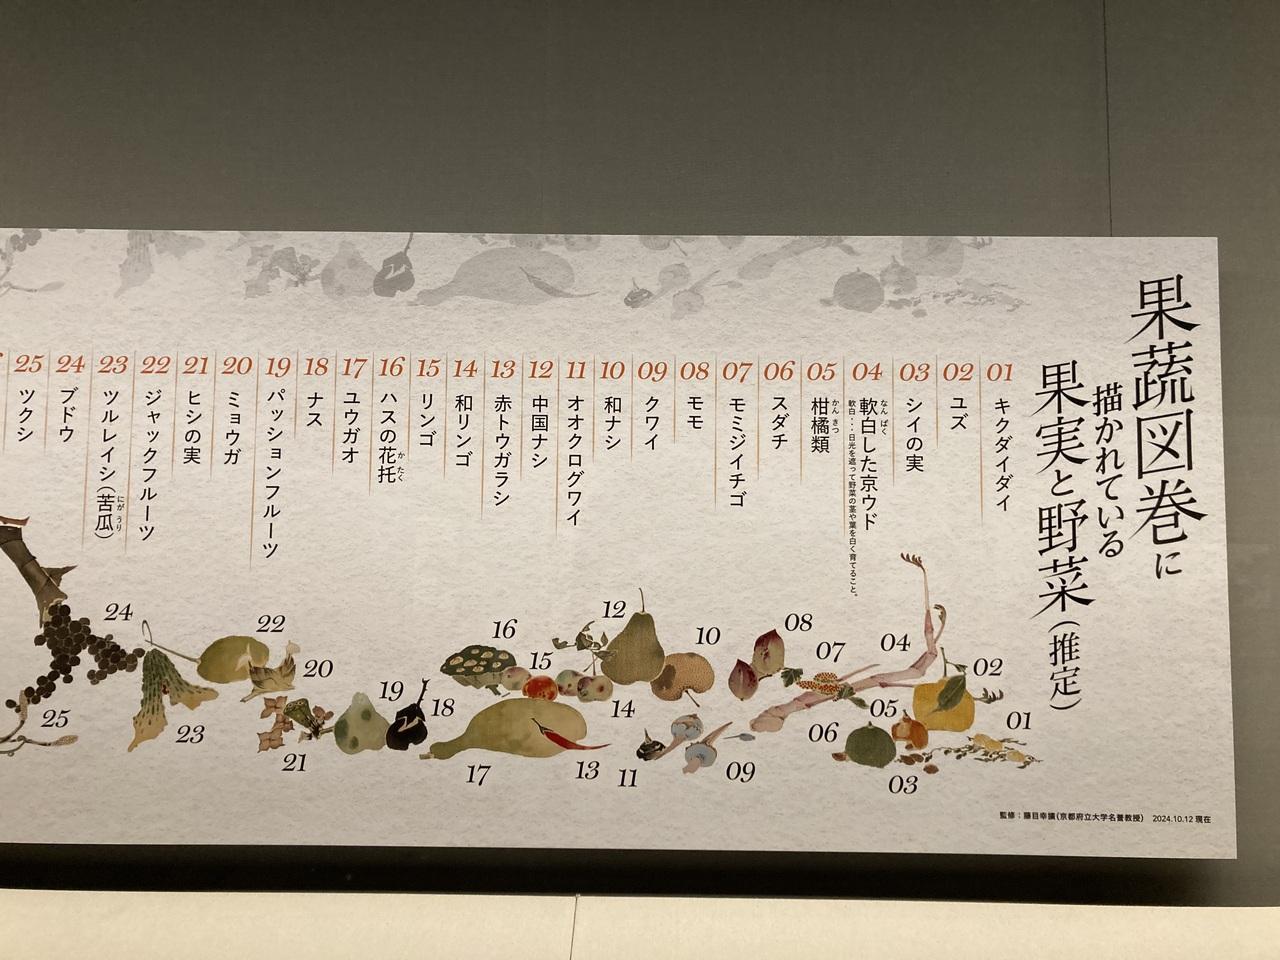 果蔬図巻に
描かれている
果実と野菜(推定)
01 キクダイダイ
02 ユズ
03 シイの実
04 軟白した京ウド
なんぱく
軟白・・・日光を遮って野菜の茎や葉を白く育てること。
05 柑橘類
かんきつ
06 スダチ
07 モミジイチゴ
08 モモ
09 クワイ
10 和ナシ
11 オオクログワイ
12 中国ナシ
13 赤トウガラシ
14 和リンゴ
15 リンゴ
16 ハスの花托
かたく
17 ユウガオ
18 ナス
19 パッションフルーツ
20 ミョウガ
21 ヒシの実
22 ジャックフルーツ
23 ツルレイシ(苦瓜)
にがうり
24 ブドウ
25 ツクシ
01
02
03
04
05
06
07
08
09
10
11
12
13
14
15
16
17
18
19
20
21
22
23
24
25
監修:藤目幸擴(京都府立大学名誉教授) 2024.10.12 現在